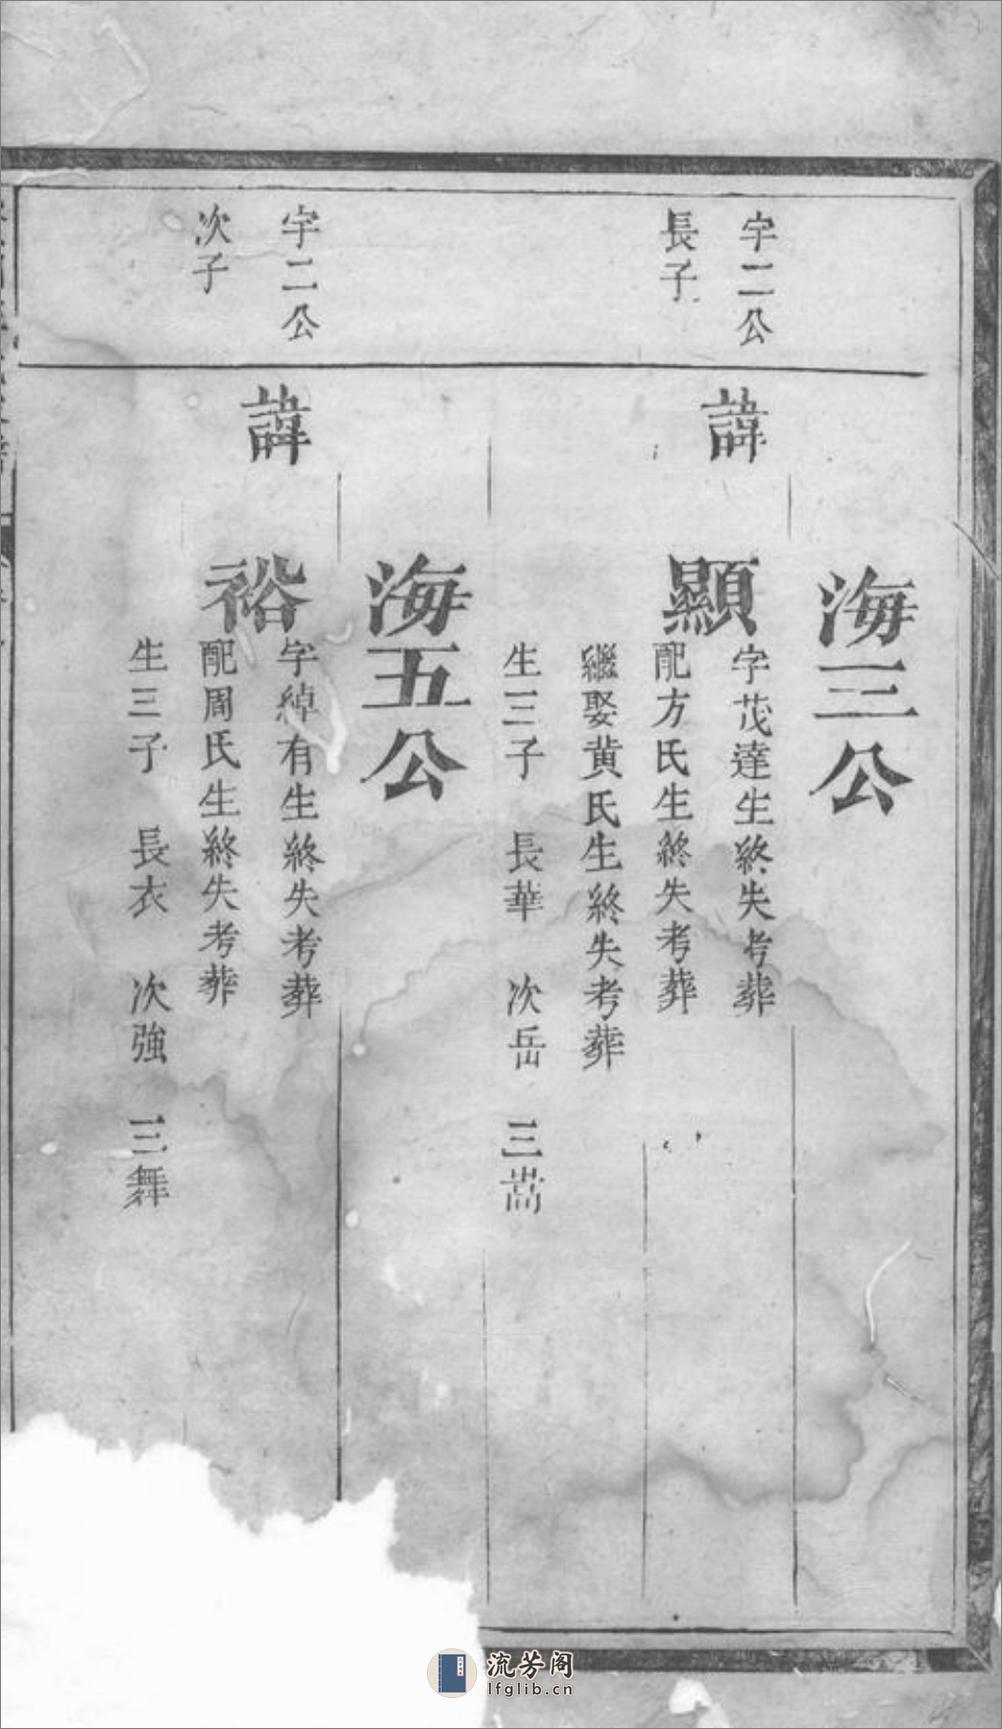 宇二公
長子
海三公
諱
顯
字茂達生終失考葬
配方氏生終失考葬
繼娶黄氏生終失考葬
生三子 長華 次岳 三嵩
宇二公
次子
海五公
諱
裕
字綽有生終失考葬
配周氏生終失考葬
生三子 長衣 次強 三舞
流芳阁
lfglib.cn